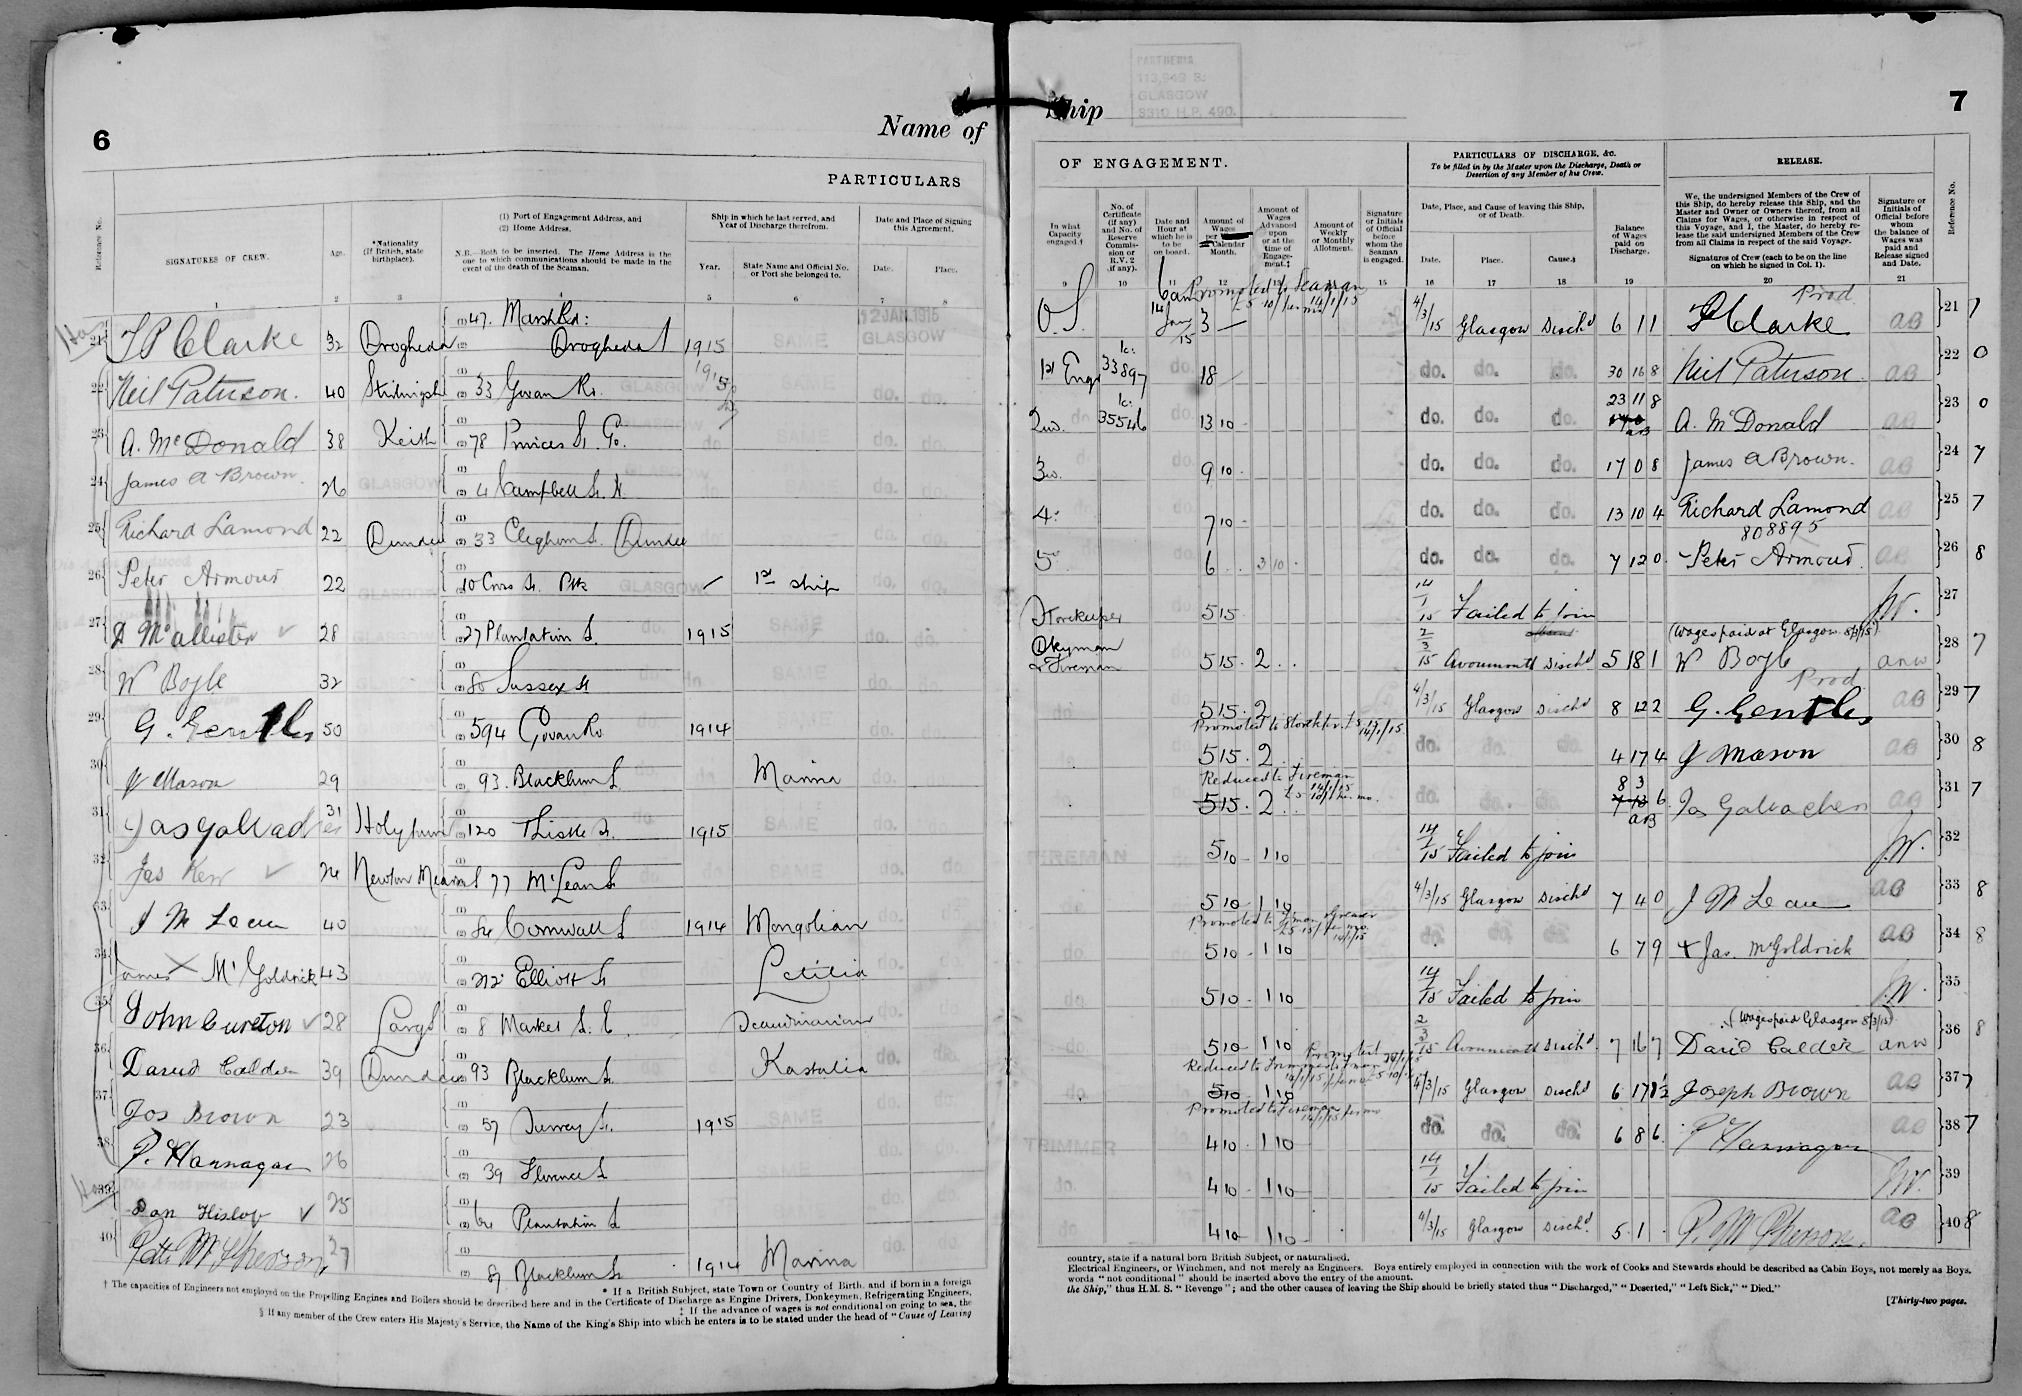 6
Name of
PARTICULARS
Reference No.
SIGNATURES OF CREW.
Age.
*Nationality
(If British, state
birthplace).
(1) Port of Engagement Address, and
(2) Home Address.
N.B.—Both to be inserted. The Home Address is the
one to which communications should be made in the
event of the death of the Seaman.
Ship in which he last served, and
Year of Discharge therefrom.
Year.
State Name and Official No.
or Port she belonged to.
Date and Place of Signing
this Agreement.
Date.
Place.
1 2 3 4 5 6 7 8
21 T P Clarke 32 Drogheda (1) 47. Marsh Rd: (2) Drogheda 1915 SAME 12 JAN 1915 GLASGOW
22 Neil Paterson. 40 (1) (2) 33 Govan Rd. 1915 SAME do. do.
23 A. McDonald 38 Keith (1) (2) 78 Princes St. Go. do SAME do. do.
24 James A Brown. 26 GLASGOW (1) (2) 4 Campbell St. do SAME do. do.
25 Richard Lamond 22 Dundee (1) (2) 33 Cleghorn St. Dundee do. SAME do. do.
26 Peter Armour 22 (1) (2) 10 Cross St. GLASGOW 1st ship do. do.
27 D McAllister ✓ 28 (1) (2) 27 Plantation St. 1915 SAME do. do.
28 W Boyle 32 (1) (2) 80 Sussex St do. SAME do. do.
29 G. Gentles 50 (1) (2) 594 Govan Rd 1914 do. do.
30 J Mason 29 (1) (2) 93. Blackburn St. Marina do. do.
31 Jas Gallacher 31 Holytown (1) (2) 120 Thistle St. 1915 SAME do. do.
32 Jas Kerr ✓ 24 Newton Mearns (1) (2) 77 McLean St. do SAME do. do
33 J McLean 40 (1) (2) 84 Cornwall St 1914 Mongolian do. do.
34 James X McGoldrick 43 (1) (2) 212 Elliott St Letitia do. do.
35 John Cureton ✓ 28 Largs (1) (2) 8 Market St. Scandinavian do. do.
36 David Calder 39 Dundee (1) (2) 93 Blackburn St. Kastalia do. do.
37 Jos Brown 23 (1) (2) 57 Surrey St. 1915 SAME do. do.
38 P. Hannagan 26 (1) (2) 39 Florence St SAME do. do.
39 Dan Hislop ✓ 25 (1) (2) Plantation St SAME do. do.
40 Patk McPherson 27 (1) (2) 87 Blackburn St. 1914 Marina do. do.
* If a British Subject, state Town or Country of Birth, and if born in a foreign
† The capacities of Engineers not employed on the Propelling Engines and Boilers should be described here and in the Certificate of Discharge as Engine Drivers, Donkeymen, Refrigerating Engineers,
‡ If the advance of wages is not conditional on going to sea, the
§ If any member of the Crew enters His Majesty's Service, the Name of the King's Ship into which he enters is to be stated under the head of "Cause of Leaving
Ship
PARTHENIA
113,943
GLASGOW
3310 H.P. 490.
7
OF ENGAGEMENT.
PARTICULARS OF DISCHARGE, &c.
To be filled in by the Master upon the Discharge, Death or
Desertion of any Member of his Crew.
RELEASE.
In what
Capacity
engaged.†
No. of
Certificate
(if any)
and No. of
Reserve
Commis-
sion or
R.V.2
(if any).
Date and
Hour at
which he is
to be
on board.
Amount of
Wages
per
Calendar
Month.
Amount of
Wages
Advanced
upon
or at the
time of
Engage-
ment.‡
Amount of
Weekly
or Monthly
Allotment.
Signature
or Initials
of Official
before
whom the
Seaman
is engaged.
Date, Place, and Cause of leaving this Ship,
or of Death.
Date.
Place.
Cause.§
Balance
of Wages
paid on
Discharge.
We, the undersigned Members of the Crew of
this Ship, do hereby release this Ship, and the
Master and Owner or Owners thereof, from all
Claims for Wages, or otherwise in respect of
this Voyage, and I, the Master, do hereby re-
lease the said undersigned Members of the Crew
from all Claims in respect of the said Voyage.
Signatures of Crew (each to be on the line
on which he signed in Col. 1).
Signature or
Initials of
Official before
whom
the balance of
Wages was
paid and
Release signed
and Date.
Reference No.
9 10 11 12 13 15 16 17 18 19 20 21
Promoted to Seaman
£5 10/ per mo 14/1/15
Prod
O.S. 6am 14 Jan 15 3 — 4/3/15 Glasgow Disch'd 6 11 T P Clarke AB 21 7
1st Engr 1c. 33897 do. 18 do. do. do. 30 16 8 Neil Paterson. AB 22 0
2nd. 1c. 35546 do. 13 10 do. do. do. 23 11 8 AB A. McDonald AB 23 0
3rd. do. 9 10 do. do. do. 17 0 8 James A Brown. AB 24 7
4th do. 7 10 do. do. do. 13 10 4 Richard Lamond AB 25 7
808895
5th 6 3 10 do. do. do. 7 12 0 Peter Armour. AB 26 8
Storekeeper 5 15 14/1/15 Failed to join J.W. 27
(Wages paid at Glasgow 8/3/15)
Dkyman & Fireman 5 15 2 2/3/15 Avonmouth Disch'd 5 18 1 W Boyle 28 7
Prod
do 5 15 2 4/3/15 Glasgow Disch'd 8 12 2 G. Gentles AB 29 7
Promoted to Storekeeper 14/1/15.
5 15 2 do. do. do. 4 17 4 J Mason AB 30 8
Reduced to Fireman 14/1/15
£5 10/ per mo.
5 15 2 do. do. do. 8 3 6 AB Jas Gallacher AB 31 7
FIREMAN 5 10 1 10 14/1/15 Failed to join J.W. 32
do 5 10 1 10 4/3/15 Glasgow Disch'd 7 4 0 J McLean AB 33 8
Promoted to Greaser
£5 15/ per mo. 14/1/15
do 5 10 1 10 do. do. 6 7 9 + Jas. McGoldrick AB 34 8
do 5 10 1 10 14/1/15 Failed to join J.W. 35
(Wages paid Glasgow 8/3/15)
do 5 10 1 10 2/3/15 Avonmouth Disch'd 7 16 7 David Calder 36 8
Reduced to Trimmer 14/1/15
do 5 10 1 10 4/3/15 Glasgow Disch'd 6 17 Joseph Brown AB 37 7
Promoted to Fireman 14/1/15
TRIMMER 4 10 1 10 do. do. do. 6 8 6 P Hannagan AB 38 7
do. 4 10 1 10 14/1/15 Failed to join J.W. 39
do 4 10 1 10 4/3/15 Glasgow Disch'd. 5 1 P. McPherson. AB 40 8
country, state if a natural born British Subject, or naturalised.
Electrical Engineers, or Winchmen, and not merely as Engineers. Boys entirely employed in connection with the work of Cooks and Stewards should be described as Cabin Boys, not merely as Boys.
words "not conditional" should be inserted above the entry of the amount.
the Ship," thus H.M.S. "Revenge"; and the other causes of leaving the Ship should be briefly stated thus "Discharged," "Deserted," "Left Sick," "Died."
[Thirty-two pages.